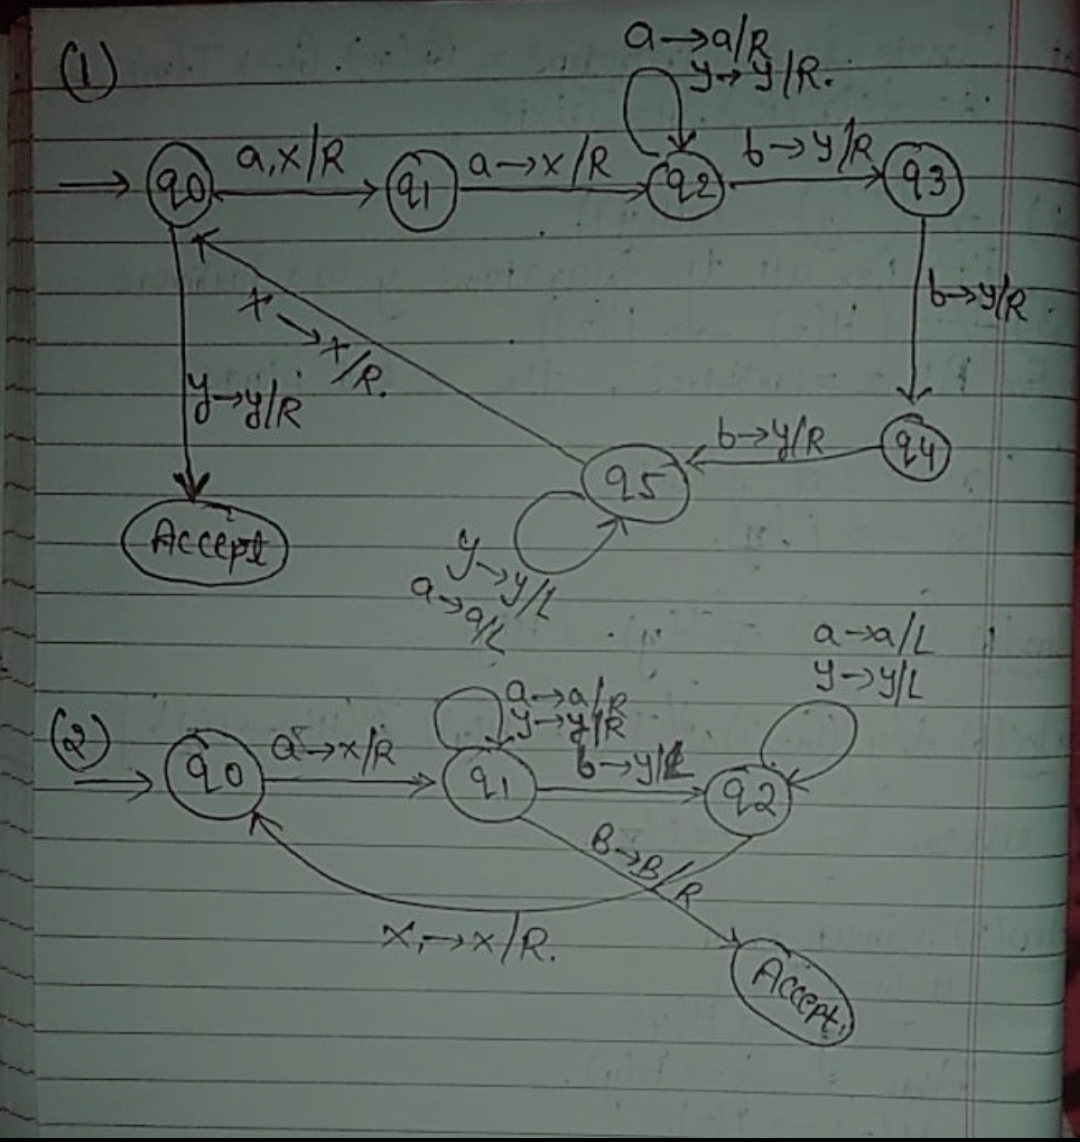 (1)
a→a/R
y→y/R.
q0 a,x/R q1 a→x/R q2 b→y/R q3
b→y/R
x→x/R.
y→y/R
b→y/R q4
q5
Accept
y→y/L
a→a/L
a→a/L
y→y/L
(2)
a→a/R
y→y/R
q0 a→x/R q1 b→y/L q2
B→B/R
x→x/R.
Accept